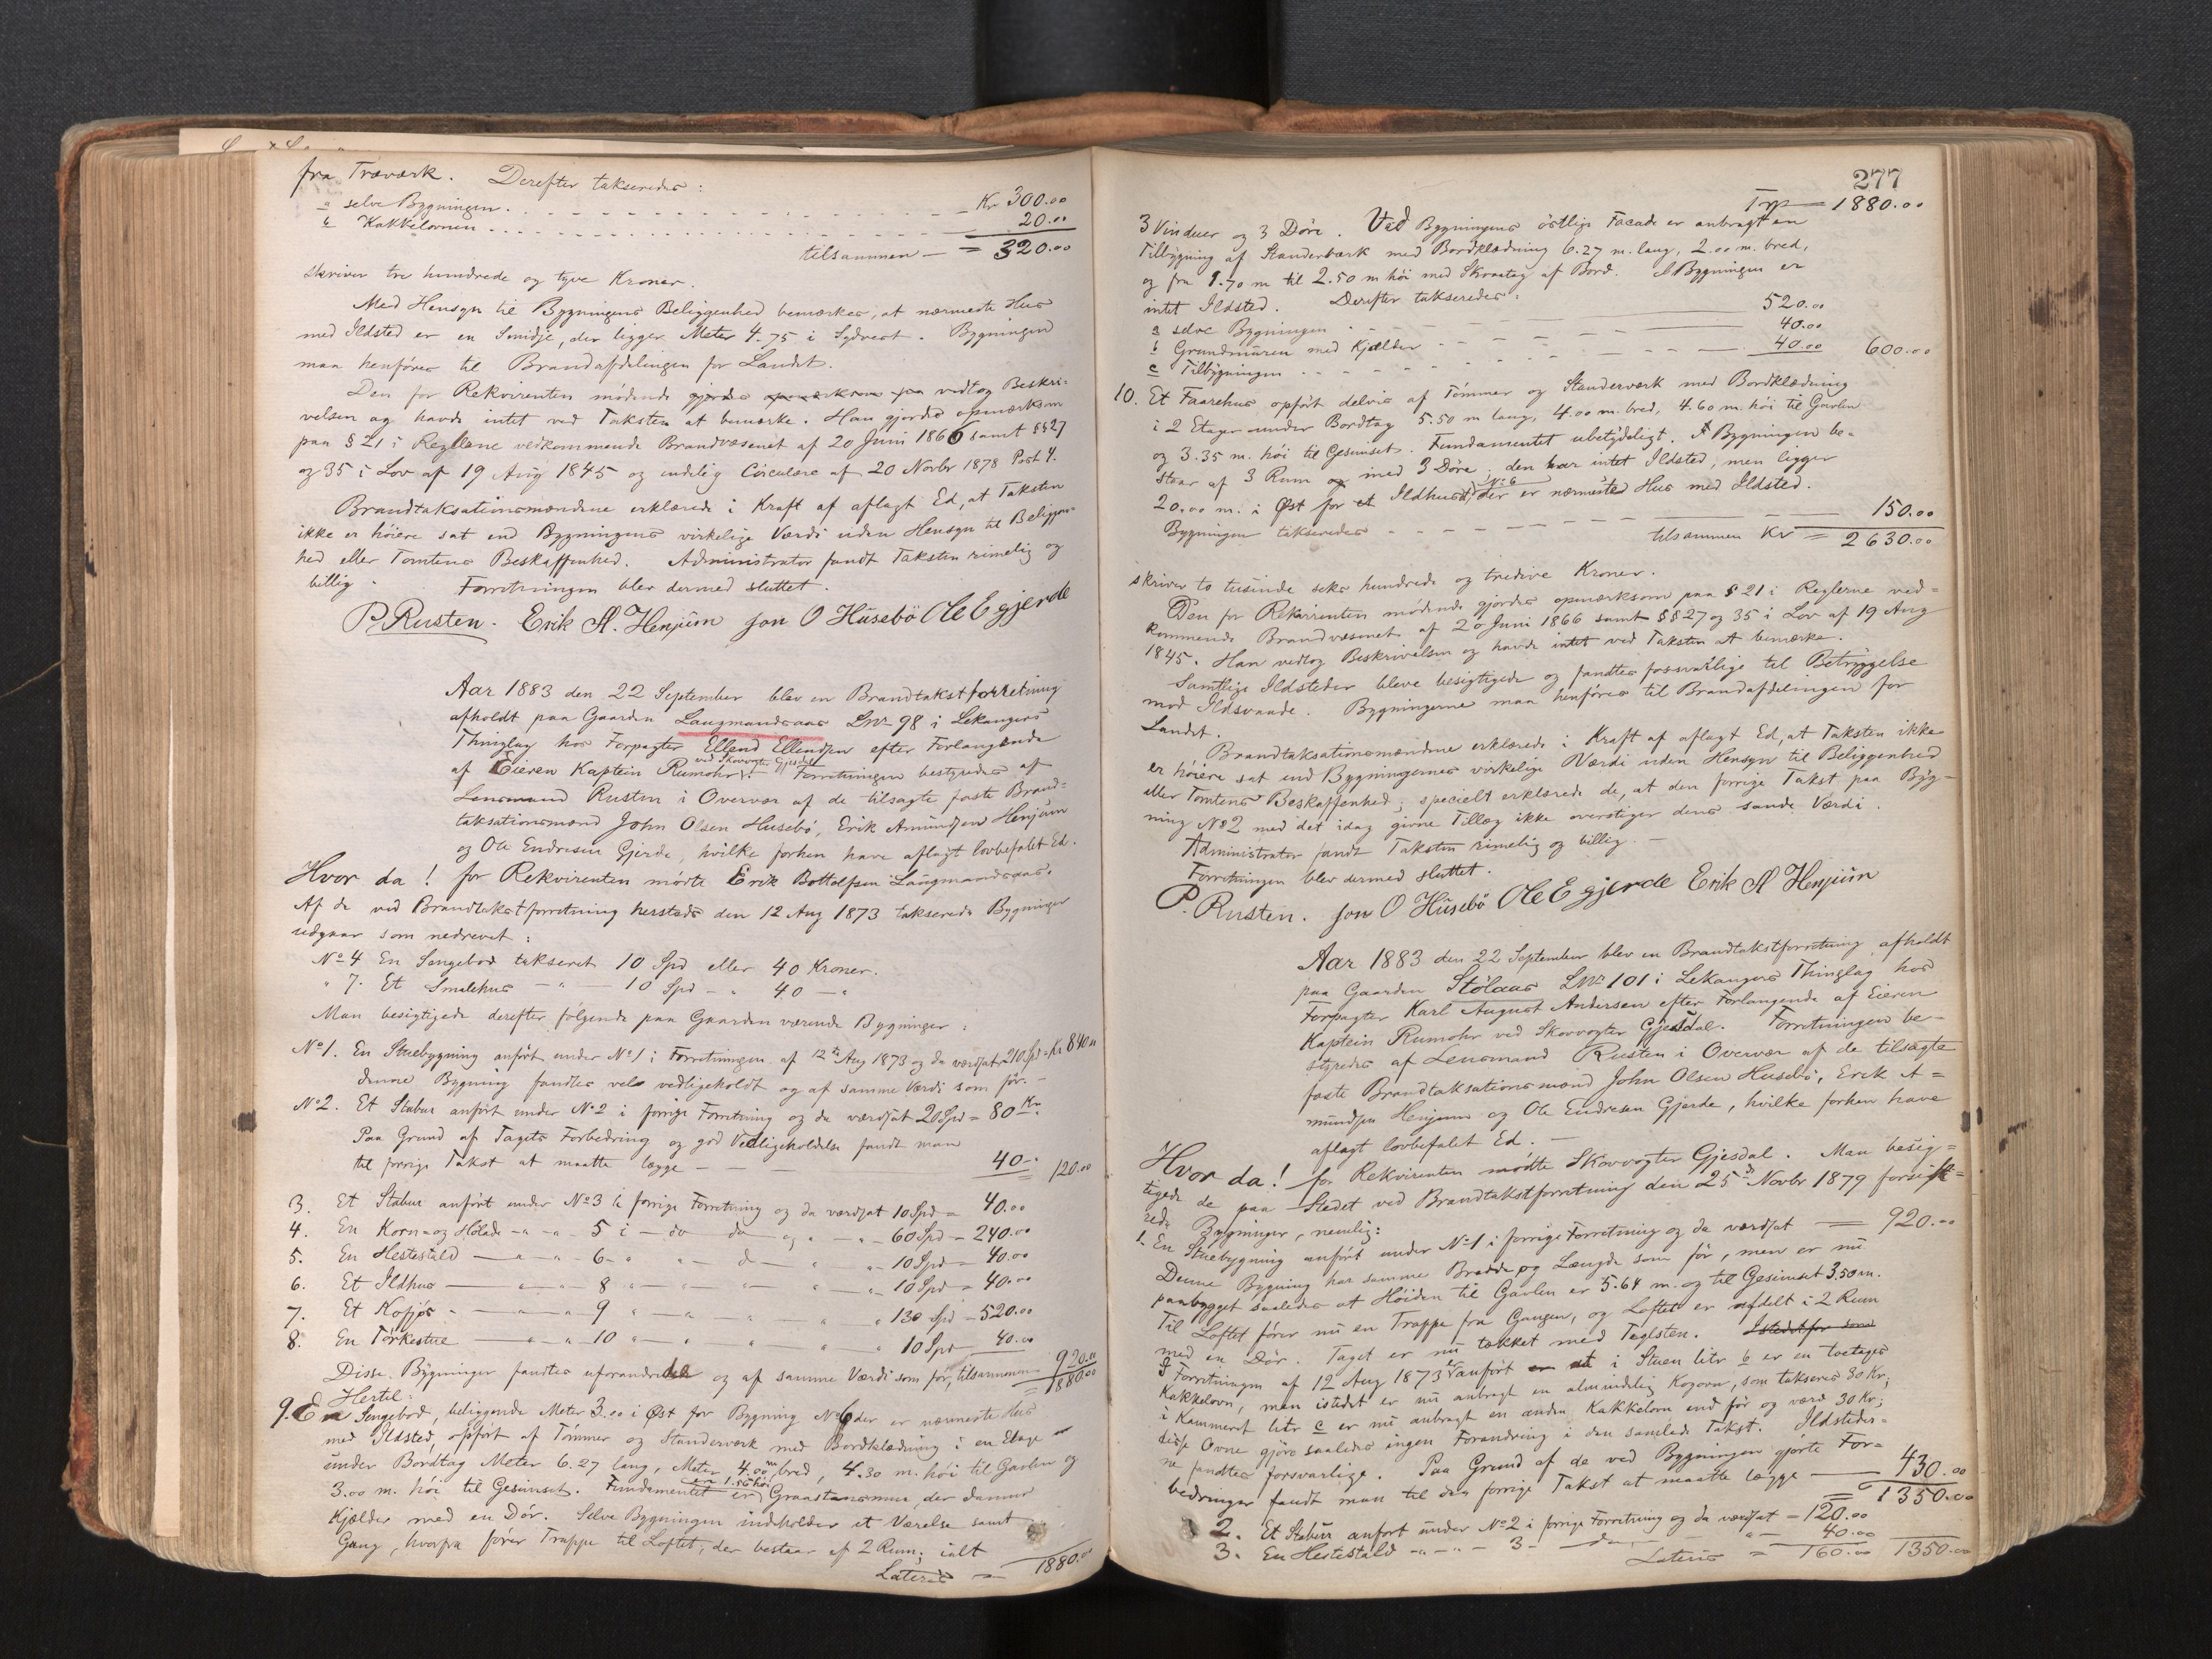 fra Træværk. Derefter takseredes:
a selve Bygningen. Kr 300.00
b Kakkelovnen 20.00
tilsammen = 320.00
skriver tre hundrede og tyve Kroner.
Med Hensyn til Bygningens Beliggenhed bemærkes, at nærmeste Hus
med Ildsted er en Smidje, der ligger Meter 4.75 i Sydvest. Bygningen
maa henføres til Brandafdelingen for Landet.
Den for Rekvirenten mødende gjordes opmærksom paa vedtog Beskri-
velsen og havde intet ved Taksten at bemærke. Han gjordes opmærksom
paa § 21 i Reglerne vedkommende Brandvæsenet af 20 Juni 1866 samt §§ 27
og 35 i Lov af 19 Aug 1845 og endelig Circulære af 20 Novbr 1878 Post 4.
Brandtaksationsmændene erklærede i Kraft af aflagt Ed, at Taksten
ikke er høiere sat end Bygningens virkelige Værdi uden Hensyn til Beliggen-
hed eller Tomtens Beskaffenhed. Administrator fandt Taksten rimelig og
billig. Forretningen blev dermed sluttet.
P. Rusten. Erik A. Henjüm Jon O Hüsebö Ole E gjerde
Aar 1883 den 22 September blev en Brandtakstforretning
afholdt paa Gaarden Laugmandsaas Lnr 98 i Lekangers
Thinglag hos Forpagter Ellend Ellendsen efter Forlangende
ved Skovvogter Gjesdal
af Eieren Kaptein Rumohr. Forretningen bestyredes af
Lensmand Rusten i Overvær af de tilsagte faste Brand-
taksationsmænd John Olsen Husebö, Erik Amundsen Henjum
og Ole Endresen Gjerde, hvilke forhen have aflagt lovbefalet Ed.
Hvor da! for Rekvirenten mødte Erik Bottolfsen Laugmandsaas.
Af de ved Brandtakstforretning hersteds den 12 Aug 1873 takserede Bygninger
udgaar som nedrevet:
No 4 En Sengebod takseret 10 Spd eller 40 Kroner.
" 7. Et Smalehus - " - 10 Spd - " 40 - "
Man besigtigede derefter følgende paa Gaarden værende Bygninger:
No 1. En Stuebygning anført under No 1 i Forretningen af 12te Aug 1873 og da værdsat 210 Spd = Kr 840 "
denne Bygning fandtes vel vedligeholdt og af samme Værdi som før. -
No 2. Et Stabur anført under No 2 i forrige Forretning og da værdsat 20 Spd = 80 Kr.
Paa Grund af Tagets Forbedring og god Vedligeholdelse fandt man
til forrige Takst at maatte lægge - - - 40 - " 120.00
3. Et Stabur anført under No 3 i forrige Forretning og da værdsat 10 Spd = 40.00
4. En Korn- og Hölade - " - " - 5 i - do do og " - " - 60 Spd - 240.00
5. En Hestestald - " - " - 6 - " " - d - " " - 10 Spd - 40.00
6. Et Ildhus - " - " 8 " - " - " " " - 10 Spd - 40.00
7. Et Kofjös - " - " - 9 " - " - " " " 130 Spd - 520.00
8. En Törkestue - " - " - 10 " - " " " 10 Spd 40.00
Disse Bygninger fandtes uforandrede og af samme Værdi som før, tilsammen 920.00
Hertil: = 1880.00
9. En Sengebod, beliggende Meter 3.00 i Øst for Bygning No 6 der er nærmeste Hus
med Ildsted, opført af Tömmer og Standerværk med Bordklædning i en Etage
under Bordtag Meter 6.27 lang, Meter 4.00 m bred, 4.30 m. høi til Gavlen og
er 1.56 høi
3.00 m. høi til Gesimset. Fundamentet er Graastensmur, der danner
Kjælder med en Dör. Selve Bygningen indeholder et Værelse samt
Gang, hvorfra fører Trappe til Loftet, der bestaar af 2 Rum; ialt
Lateris = 1880.00
277
Trp 1880.00
3 Vinduer og 3 Döre. Ved Bygningens östlige Facade er anbragt en
Tilbygning af Standerværk med Bordklædning 6.27 m. lang, 2.00 m. bred,
og fra 1.70 m til 2.50 m høi med Skraatag af Bord. I Bygningen er
intet Ildsted. Derefter takseredes:
a selve Bygningen 520.00
b Grundmuren med Kjælder 40.00
c Tilbygningen 40.00 600.00
10. Et Faarehus opført delvis af Tömmer og Standerværk med Bordklædning
i 2 Etager under Bordtag 5.50 m lang, 4.00 m. bred, 4.60 m. høi til Gavlen
og 3.35 m. høi til Gesimset. Fundamentet ubetydeligt. Bygningen be-
staar af 3 Rum og med 3 Döre; den har intet Ildsted, men ligger
No 6
20.00 m. i Øst for et Ildhuset, der er nærmeste Hus med Ildsted.
Bygningen takseredes 150.00
tilsammen Kr = 2630.00
skriver to tusinde seks hundrede og tredive Kroner.
Den for Rekvirenten mødende gjordes opmærksom paa § 21 i Reglerne ved-
kommende Brandvæsenet af 20 Juni 1866 samt §§ 27 og 35 i Lov af 19 Aug
1845. Han vedtog Beskrivelsen og havde intet ved Taksten at bemærke.
Samtlige Ildsteder bleve besigtigede og fandtes forsvarlige til Betryggelse
mod Ildsvaade. Bygningerne maa henføres til Brandafdelingen for
Landet.
Brandtaksationsmændene erklærede i Kraft af aflagt Ed, at Taksten ikke
er høiere sat end Bygningernes virkelige Værdi uden Hensyn til Beliggenhed
eller Tomtens Beskaffenhed; specielt erklærede de, at den forrige Takst paa Byg-
ning No 2 med det idag givne Tillæg ikke overstiger dens sande Værdi.
Administrator fandt Taksten rimelig og billig. -
Forretningen blev dermed sluttet.
P. Rusten. Jon O Hüsebö Ole E gjerde Erik A Henjüm
Aar 1883 den 22 September blev en Brandtakstforretning afholdt
paa Gaarden Stölaas Lnr 101 i Lekangers Thinglag hos
Forpagter Karl August Andersen efter Forlangende af Eieren
Kaptein Rumohr ved Skovvogter Gjesdal. Forretningen be-
styredes af Lensmand Rusten i Overvær af de tilsagte
faste Brandtaksationsmænd John Olsen Husebö, Erik A-
mundsen Henjum og Ole Endresen Gjerde, hvilke forhen have
aflagt lovbefalet Ed. -
Hvor da! for Rekvirenten mødte Skovvogter Gjesdal. Man besig-
tigede de paa Stedet ved Brandtakstforretning den 25de Novbr 1879 forsik-
rede Bygninger, nemlig:
1. En Stuebygning anført under No 1 i forrige Forretning og da værdsat = 920.00
Denne Bygning har samme Bredde og Længde som før, men er nu
paabygget saaledes at Høiden til Gavlen er 5.64 m. og til Gesimset 3.50 m.
Til Loftet fører nu en Trappe fra Gangen, og Loftet er afdelt i 2 Rum
med en Dör. Taget er nu takket med Teglsten. Istedetfor som
I Forretningen af 12 Aug 1873 er anført i Stuen litr b er en toetages
Kakkelovn, men istedet er nu anbragt en almindelig Kogovn, som takseres 30 Kr;
i Kammeret litr c er nu anbragt en anden Kakkelovn end før og værd 30 Kr;
disse Ovne gjøre saaledes ingen Forandring i den samlede Takst. Ildsteder-
ne fandtes forsvarlige. Paa Grund af de ved Bygningen gjorte For-
bedringer fandt man til den forrige Takst at maatte lægge 430.00
= 1350.00
2. Et Stabur anført under No 2 i forrige Forretning og da værdsat = 120.00
3. En Hestestald - " - " - 3 - do " - 40.00
Lateris = 160.00 1350.00